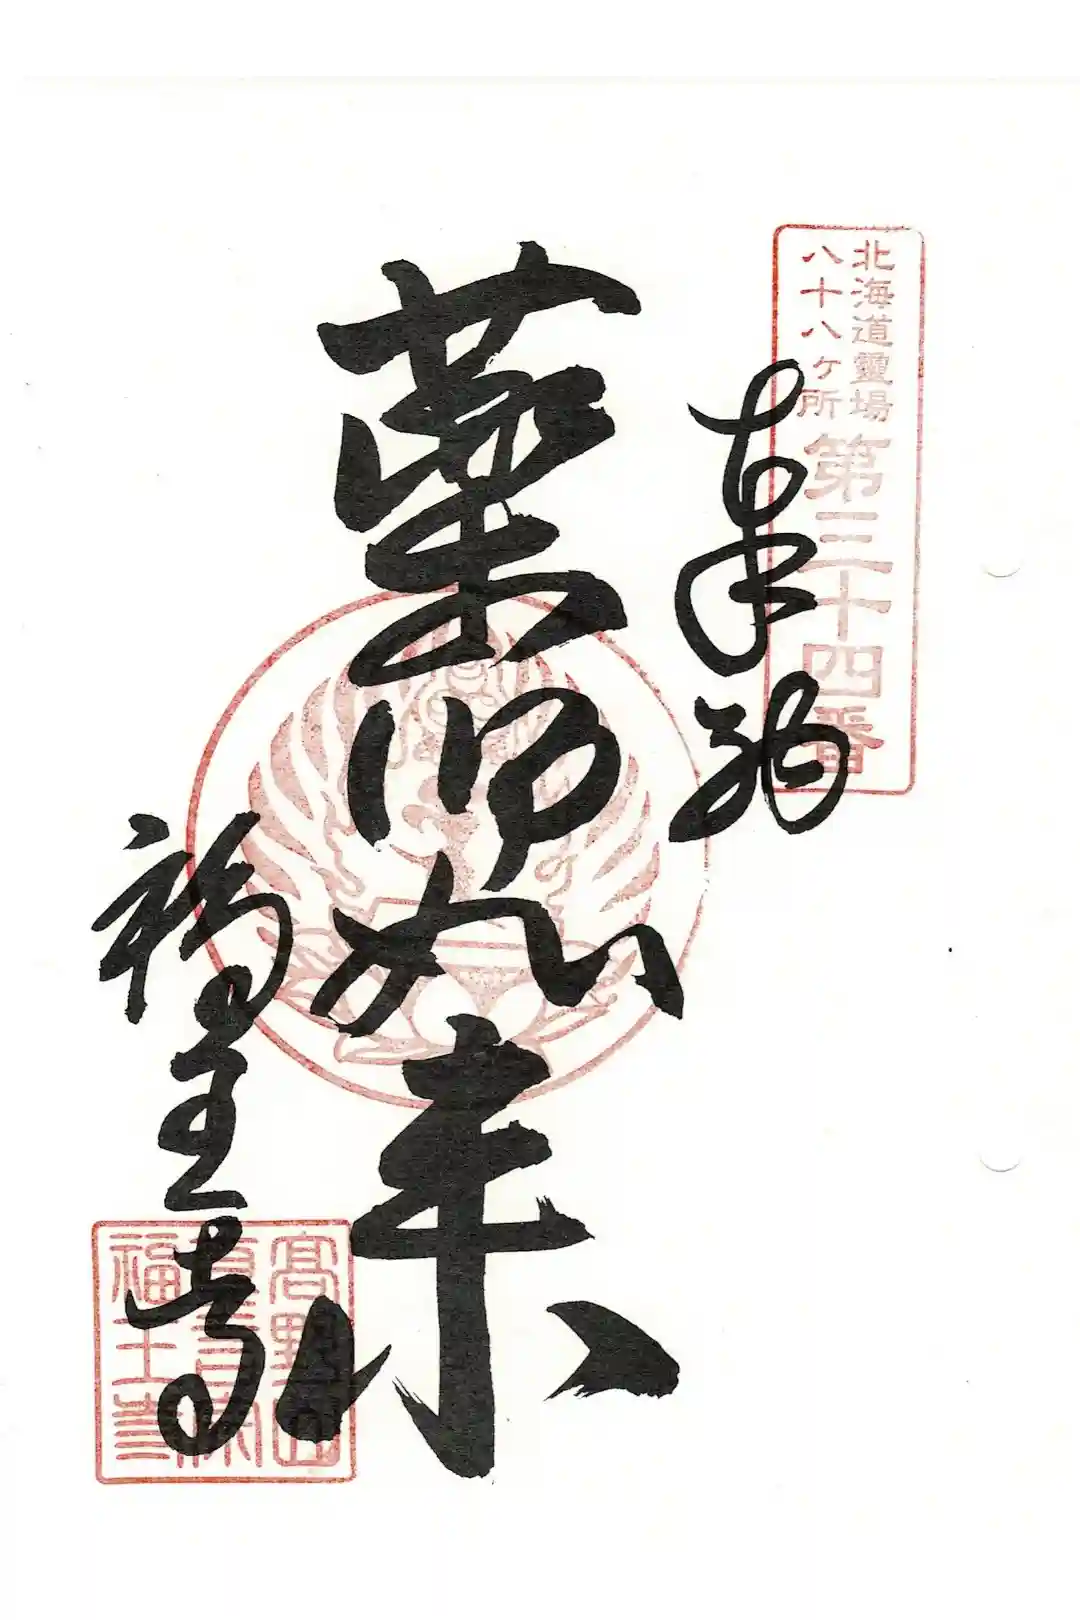 北海道霊場
八十八ヶ所
第三十四番
奉拝
薬師如来
福王寺
高野山
真言宗
福王寺